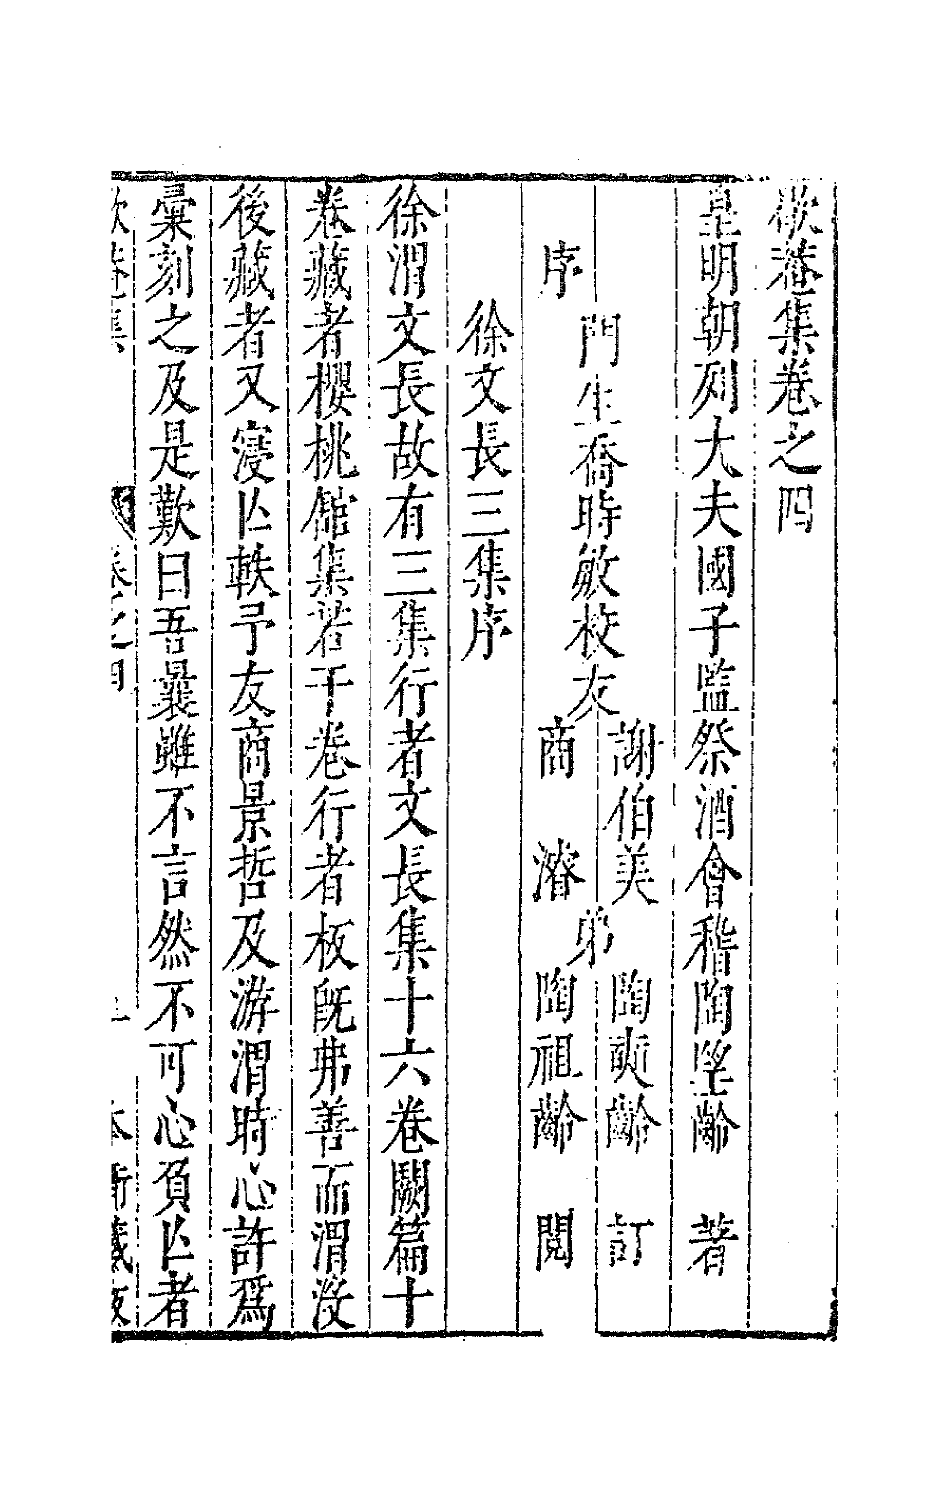 歇菴集卷之四
皇明朝列大夫國子監祭酒會稽陶朢齡 著
門生喬時敏校友 謝伯美 弟 陶奭齡 訂
商 濬 陶祖齡 閱
序
徐文長三集序
徐渭文長故有三集行者文長集十六卷闕篇十
卷藏者櫻桃館集若干卷行者板既弗善而渭沒
後藏者又寖亾軼予友商景哲及游渭時心許爲
彚刻之及是歎曰吾曩雖不言然不可心負亾者
歇菴集 卷之四 本衙藏板